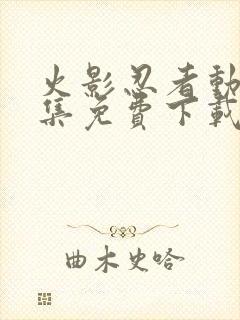 火影忍者動
集免費下載
曲木史哈